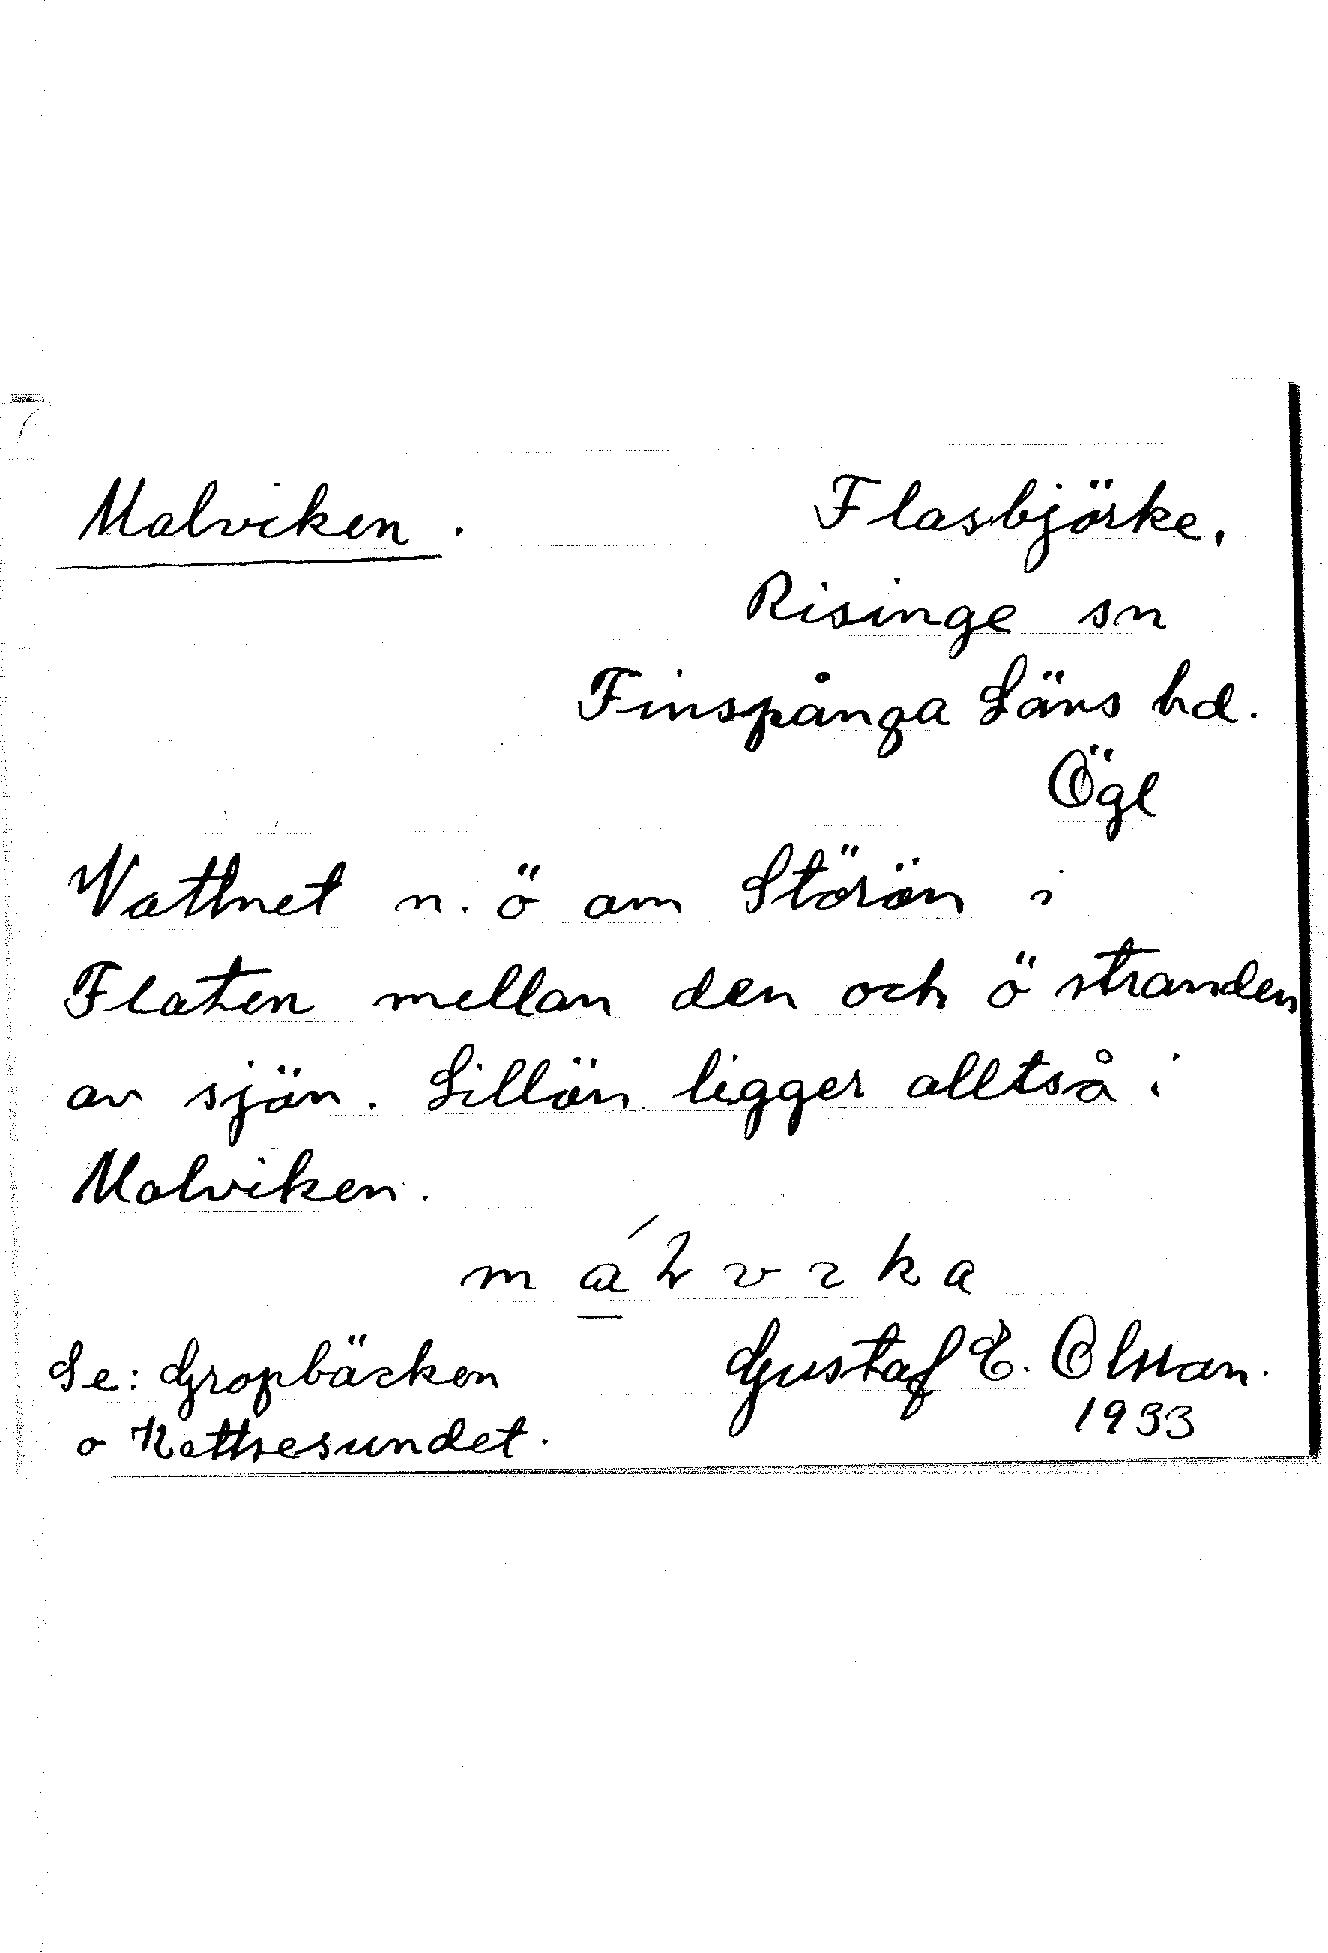 Malviken.
Flasbjörke.
Risinge sn
Finspånga Läns hd.
Ögl
Vattnet n. ö om Störön i
Flaten mellan den och ö stranden
av sjön. Lillön ligger alltså i
Malviken.
Se: Gropbäcken
o Kattsesundet.
Gustaf E. Olsson.
1933